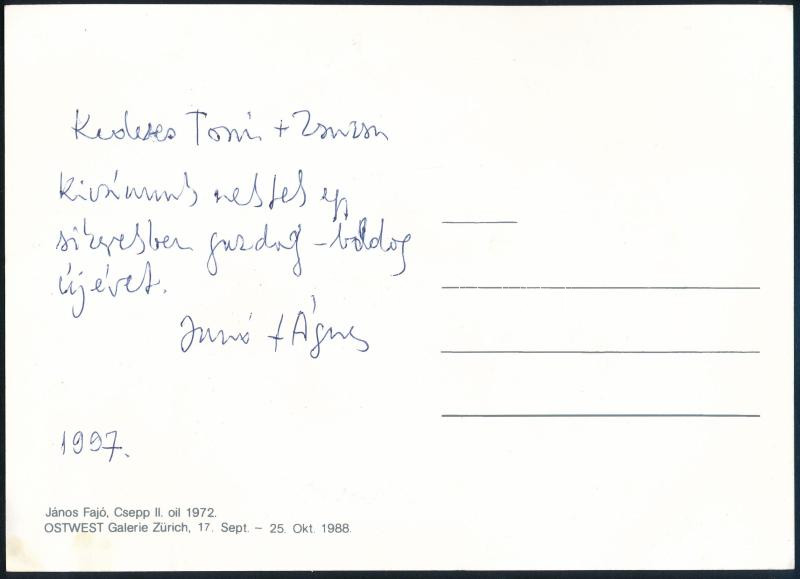 Kedves Tomi + Zsuzsa
Kivánunk nektek egy
sikerekben gazdag – boldog
újévet.
+ Ágnes
1997.
János Fajó, Csepp II. oil 1972.
OSTWEST Galerie Zürich, 17. Sept. – 25. Okt. 1988.